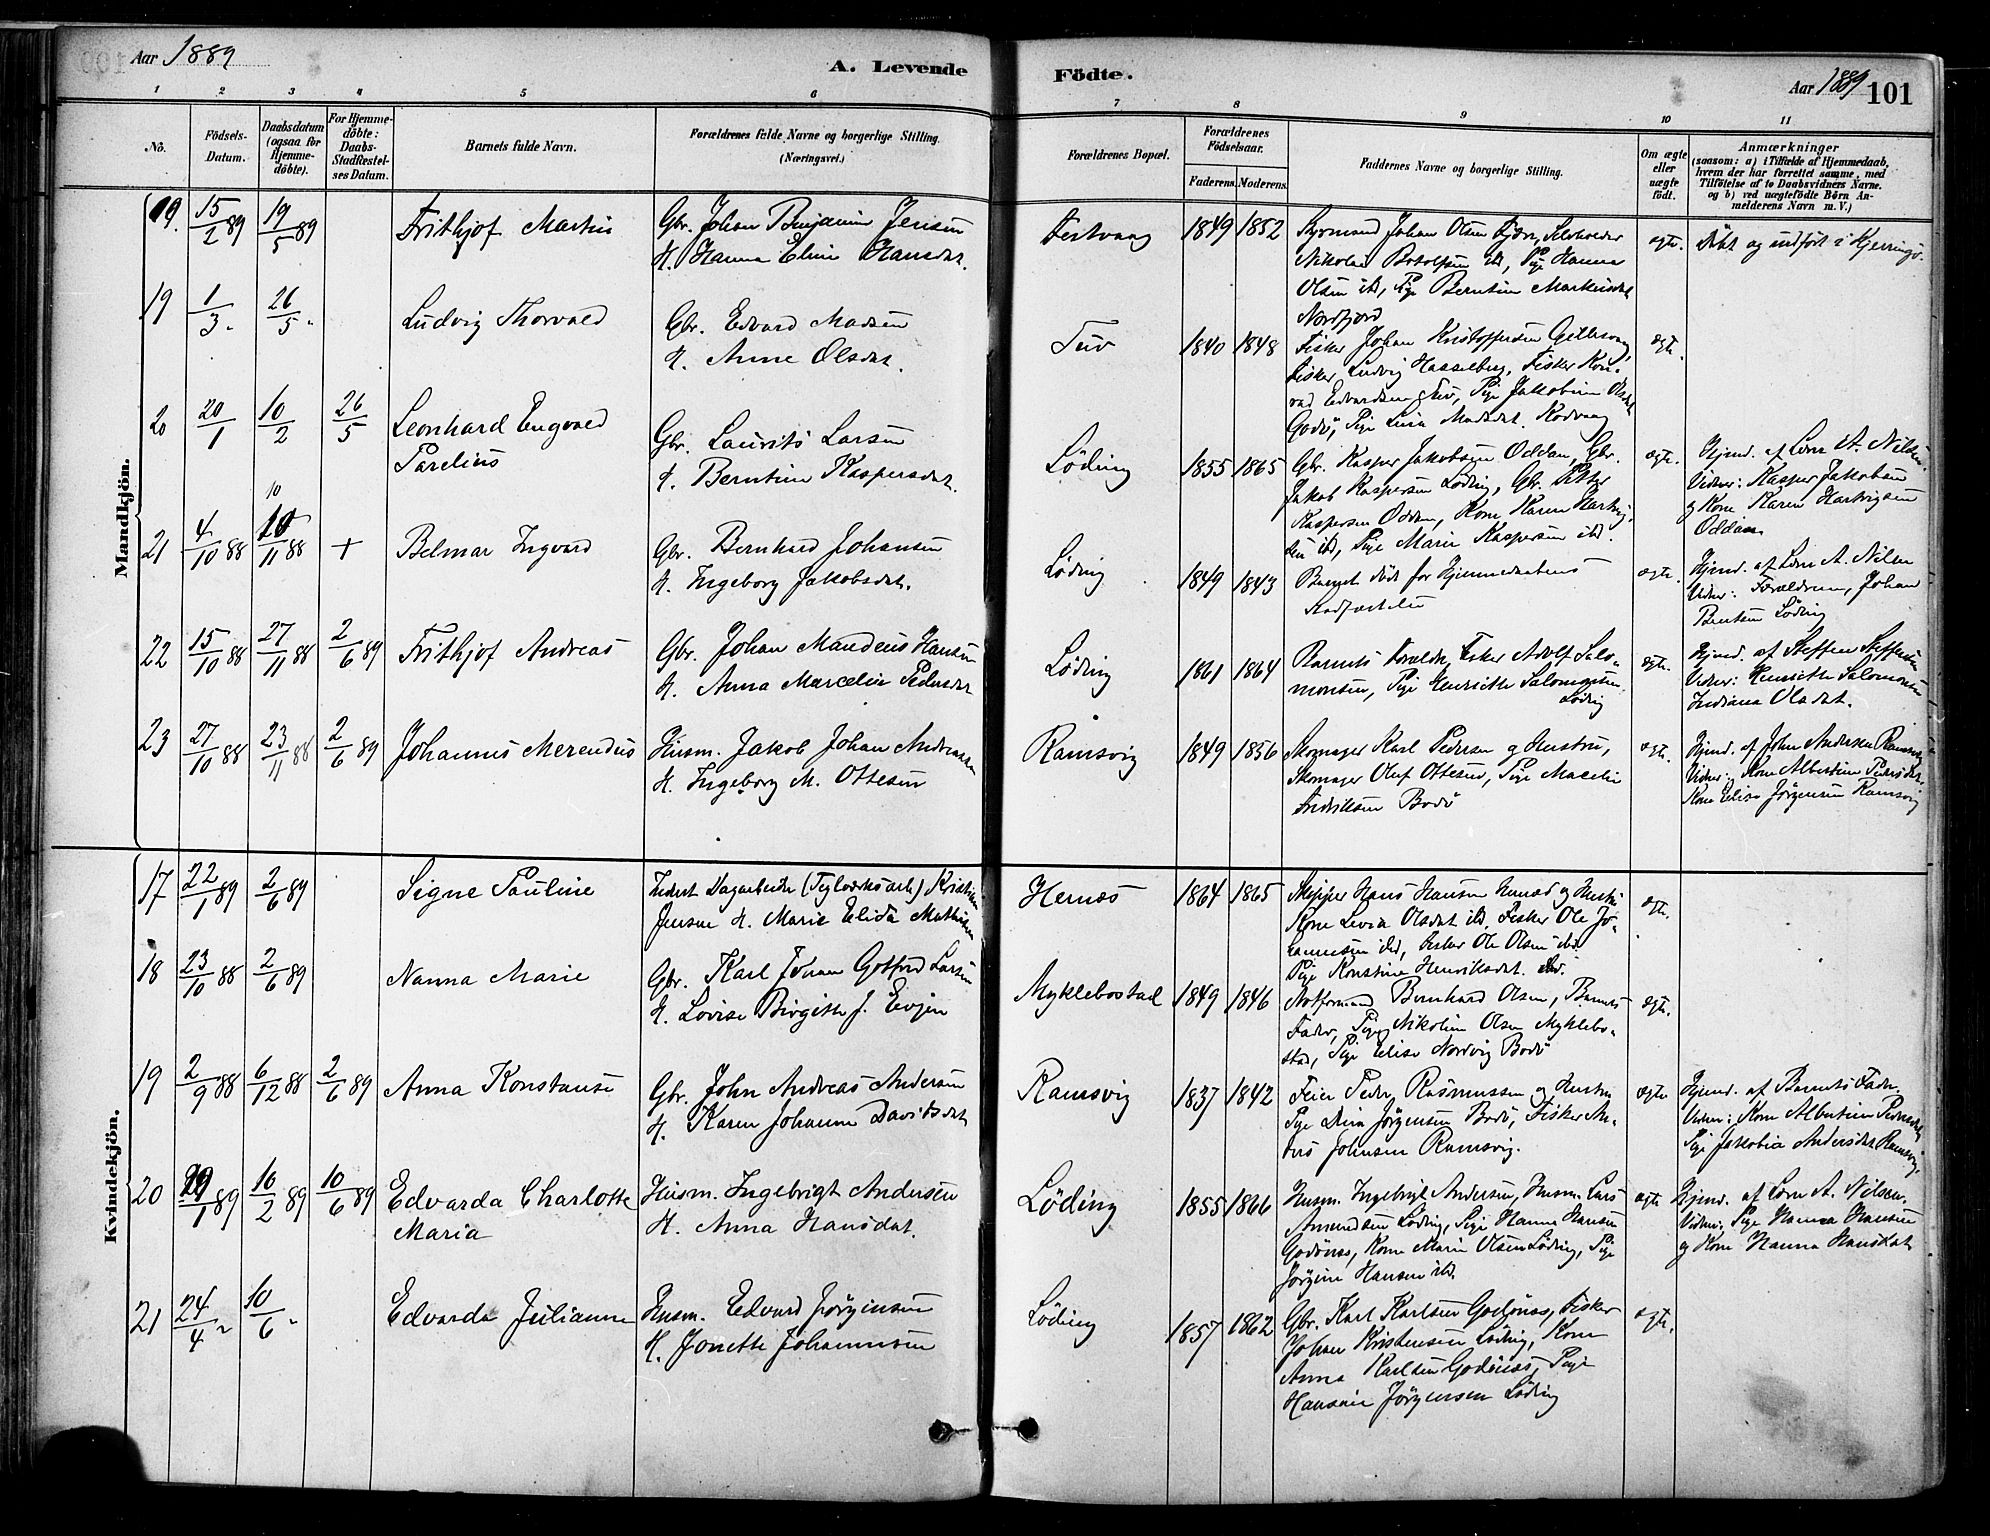 Aar 1889
A. Levende
Födte.
Aar 1889 101
1 2 3 4 5 6 7 8 9 10 11
No.
Födsels-
Datum.
Daabsdatum
(ogsaa for
Hjemme-
döbte).
For Hjemme-
döbte:
Daabs-
Stadfæstel-
ses Datum.
Barnets fulde Navn.
Forældrenes fulde Navne og borgerlige Stilling.
(Næringsvei.)
Forældrenes Bopæl.
Forældrenes
Födselsaar.
Faderens. Moderens.
Faddernes Navne og borgerlige Stilling.
Om ægte
eller
uægte
födt.
Anmærkninger
(saasom: a) i Tilfælde af Hjemmedaab,
hvem der har forrettet samme, med
Tilföielse af to Daabsvidners Navne.
og b) ved uægtefödte Börn An-
melderens Navn m. V.)
Mandkjön.
19. 15/2 89 19/5 89 Frithjof Martin
Gbr. Johan Benjamin Jensen
H. Hanna Eline Hansdat.
Festvaag 1849 1852
Styrmand Johan Olsen Kjær, Selveier
Nikolai Botolfsen ibd, Pige Hanna
Olsen ibd, Pige Berntine Markusdat
Nordfjord
ægte. Döbt og indfört i Kjerringö.
19 1/3 " 26/5 " Ludvig Thorvald
Gbr. Edvard Madsen
H. Anne Olsdat.
Tuv 1840 1848
Fisker Johan Kristoffersen Gillesvaag,
Fisker Ludvig Hasselberg, Fisker Kon-
rad Edvardsen Tuv, Pige Jakobine Olsdat
Godö, Pige Lina Madsdat. Kodvaag
ægte.
20 20/1 10/2 26/5 Leonhard Engvald
Parelius
Gbr. Laurits Larsen
H. Berntine Kaspersdat.
Löding 1855 1865
Gbr. Kasper Jakobsen Oddan, Gbr.
Jakob Kaspersen Löding, Gbr. Petter
Kaspersen Oddan, Kone Karen Hartvig-
sen ibd, Pige Marie Kaspersen ibd.
ægte. Hjmd. af Lorn A. Nilsen.
Vidner: Kasper Jakobsen
og Kone Karen Hartvigsen
Oddan
21 4/10 88 10/11 88 + Belmar Ingvard
Gbr. Bernhard Johansen
H. Ingeborg Jakobsdat.
Löding 1849 1843
Barnet död for Hjemmedaabens
Stadfæstelse
ægte. Hjmd. af Lorn A. Nilsen
Vidner: Forældrene, Johan
Bentsen Löding
22 15/10 88 27/11 88 2/6 89 Frithjof Andreas
Gbr. Johan Mandeus Hansen
H. Anna Marcelie Pedersdat
Löding 1861 1864
Barnets Foræld., Fisker Adolf Salo-
monsen, Pige Henriette Salomonsen
Löding
ægte. Hjmd. af Steffen Steffensen
Vidner: Henriette Salomonsen
Indiana Olsdat.
23 27/10 88 23/11 88 2/6 89 Johannes Merendus
Husm. Jakob Johan Andreassen
H. Ingeborg M. Ottesen
Ramsvig 1849 1856
Skomager Karl Pedersen og Hustru,
Skomager Oluf Ottesen, Pige Macelie
Fredriksen Bodö
ægte. Hjmd. af John Andersen Ramsvig
Vidner: Kone Albertine Pedersdat.
Kone Elise Jörgensen Ramsvig
Kvindekjön.
17 22/1 89 2/6 89 Signe Pauline
Inderst Dagarbeider (Teglværksarb) Kristian
Jensen H. Marie Elida Mathisen
Hernæs 1864 1865
Skipper Hans Hansen Hernæs og Hustru
Kone Levia Olsdat ibd, Fisker Ole Jo-
hannesen ibd, Fisker Ole Olsen ibd
Pige Konstine Henriksdat. ibd.
ægte.
18 23/10 88 2/6 89 Nanna Marie
Gbr. Karl Johan Gotford Larsen
H. Lovise Birgitte J. Evjen
Myklebostad 1849 1846
Notformand Bernhard Olsen, Barnets
Fader, Pige Nikoline Olsen Myklebo-
stad, Pige Elise Nordvig Bodö
ægte.
19 2/9 88 6/12 88 2/6 89 Anna Konstanse
Gbr. John Andreas Andersen
H. Karen Johanne Davidsdat
Ramsvig 1837 1842
Feier Peder Rasmussen og Hustru
Pige Dina Jörgensen Bodö, Fisker An-
ders Johnsen Ramsvig.
ægte Hjmd. af Barnets Fader.
Vidner: Kone Albertine Pedersdat
Pige Jakobia Andersdat Ramsvig.
20 29/1 89 16/2 89 10/6 89 Edvarda Charlotte
Maria
Husm. Ingebrigt Andersen
H. Anna Hansdat.
Löding 1855 1866
Husm. Ingebrigt Andersen, Husm. Lars
Amundsen Löding, Pige Hanna Hansen
Godönes, Kone Marie Olsen Löding, Pige
Jörgine Hansen ibd
ægte Hjmd. af Lorn A. Nilsen.
Vidner: Pige Hanna Hansen
og Kone Hanna Hansdat
21 24/4 " 10/6 " Edvarda Julianne
Husm. Edvard Jörginsen
H. Jonette Johannesen
Löding 1857 1862
Gbr. Karl Karlsen Godönes, Fisker
Johan Kristensen Löding, Kone
Anna Karlsen Godönes, Pige
Hansine Jörgensen Löding
ægte.